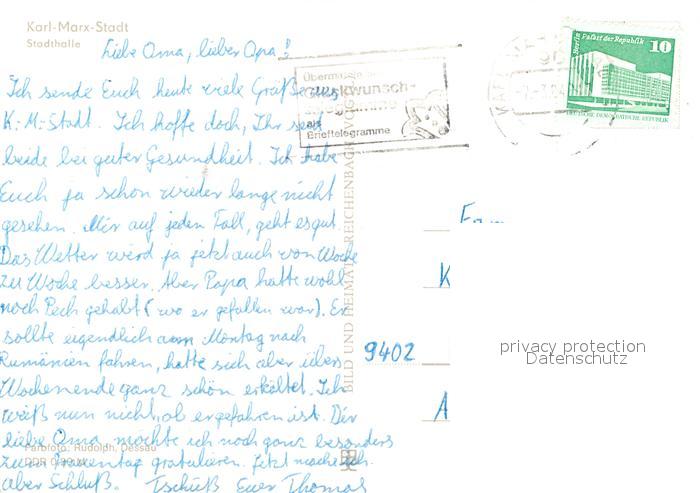 Karl-Marx-Stadt
Stadthalle
Liebe Oma, lieber Opa!
Ich sende Euch heute viele Grüße aus
K.-M.-Stadt. Ich hoffe doch, Ihr seid
beide bei guter Gesundheit. Ich habe
Euch ja schon wieder lange nicht
gesehen. Mir auf jeden Fall, geht es gut.
Das Wetter wird ja jetzt auch von Woche
zu Woche besser. Aber Papa hatte wohl
noch Pech gehabt (wo er gefallen war). Er
sollte eigendlich am Montag nach
Rumänien fahren, hatte sich aber übers
Wochenende ganz schön erkältet. Ich
weiß nun nicht, ob er gefahren ist. Dir
liebe Oma, möchte ich noch ganz besonders
zum Frauentag gratulieren. Jetzt mache ich
aber Schluß. Tschüß Euer Thomas
Farbfoto: Rudolph, Dessau
BILD UND HEIMAT REICHENBACH
Glückwunsch-
als
Brieftelegramme
Berlin Palast der Republik
10
DEUTSCHE DEMOKRATISCHE REPUBLIK
Fam
K
9402
A
privacy protection
Datenschutz